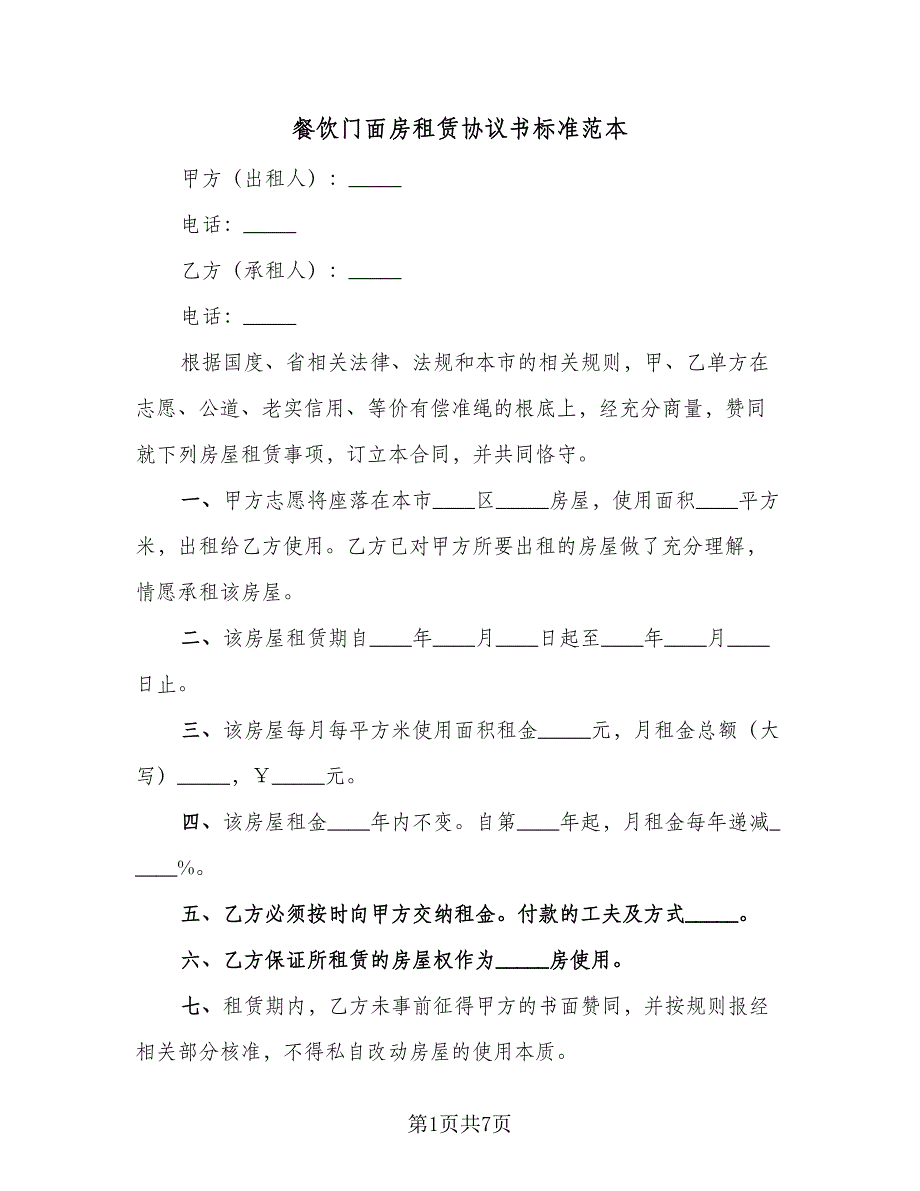 餐饮门面房租赁协议书标准范本
甲方（出租人）：_____
电话：_____
乙方（承租人）：_____
电话：_____
根据国度、省相关法律、法规和本市的相关规则，甲、乙单方在
志愿、公道、老实信用、等价有偿准绳的根底上，经充分商量，赞同
就下列房屋租赁事项，订立本合同，并共同恪守。
一、甲方志愿将座落在本市____区_____房屋，使用面积____平方
米，出租给乙方使用。乙方已对甲方所要出租的房屋做了充分理解，
情愿承租该房屋。
二、该房屋租赁期自____年____月____日起至____年____月____
日止。
三、该房屋每月每平方米使用面积租金_____元，月租金总额（大
写）_____，￥_____元。
四、该房屋租金____年内不变。自第____年起，月租金每年递减_
____%。
五、乙方必须按时向甲方交纳租金。付款的工夫及方式_____。
六、乙方保证所租赁的房屋权作为_____房使用。
七、租赁期内，乙方未事前征得甲方的书面赞同，并按规则报经
相关部分核准，不得私自改动房屋的使用本质。
第1页共7页